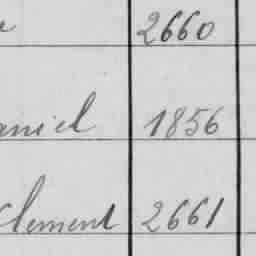 2660
aniel 1856
Clement 2661